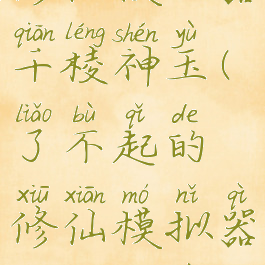 qiān léng shén yù
千棱神玉(
liǎo bù qǐ de
了不起的
xiū xiān mó nǐ qì
修仙模拟器